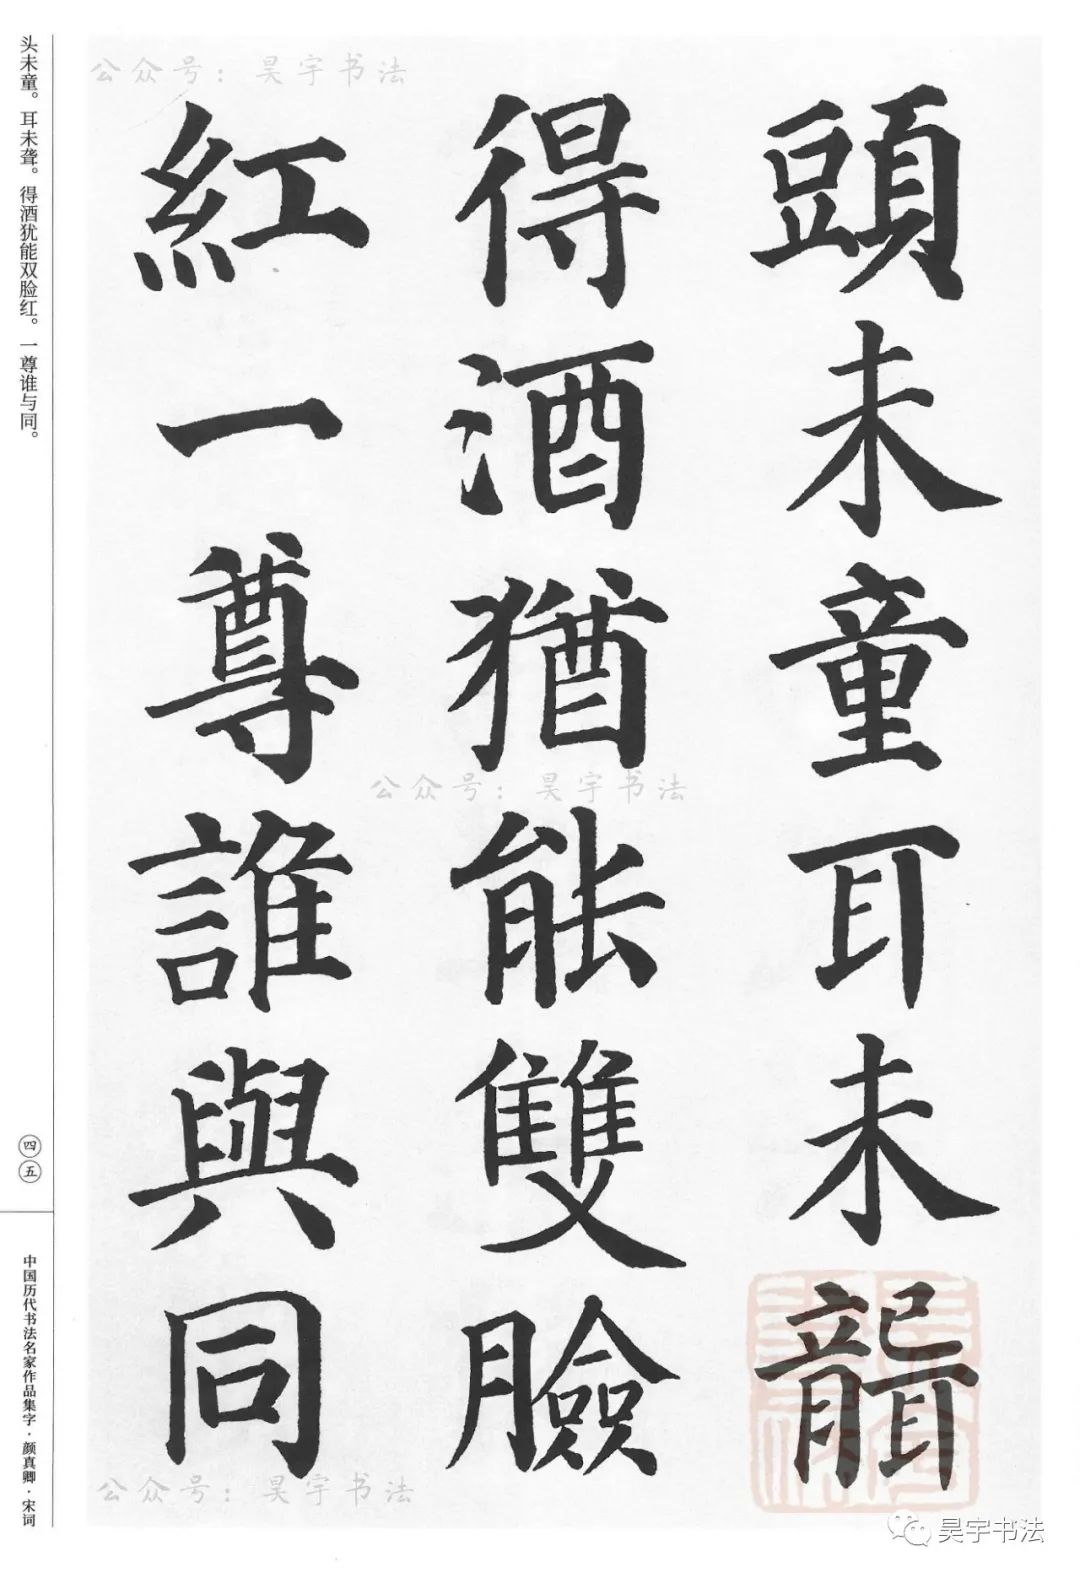 公众号：昊宇书法
頭未童耳未聾
得酒猶能雙臉
紅一尊誰與同
公众号：昊宇书法
公众号：昊宇书法
昊宇书法
头未童。耳未聋。得酒犹能双脸红。一尊谁与同。
四五
中国历代书法名家作品集字·颜真卿·宋词